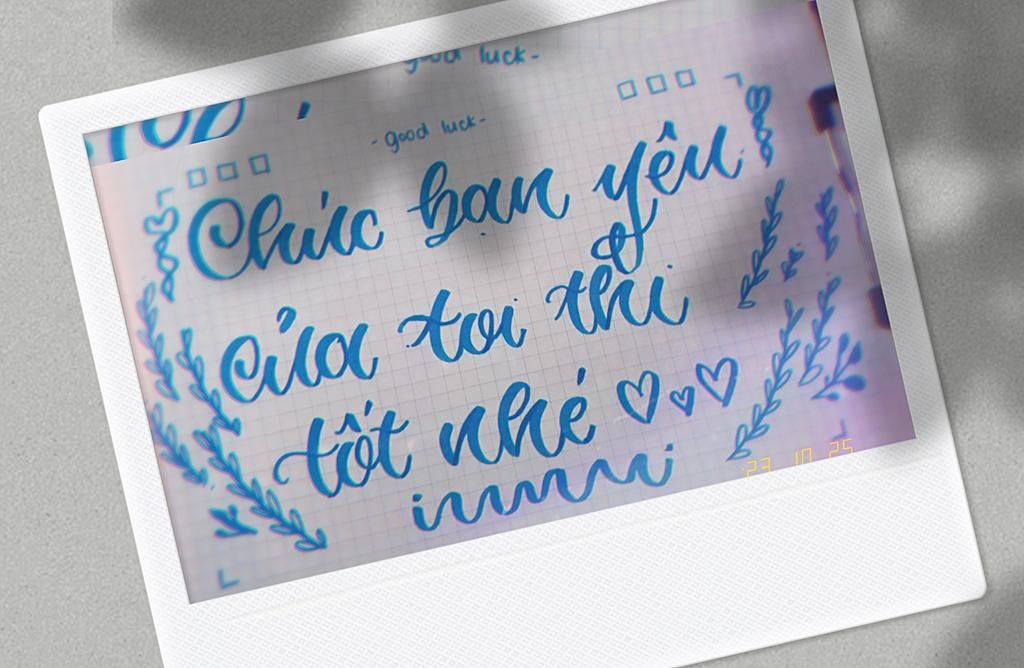 - good luck -
- good luck -
Chúc bạn yêu
của toi thi
tốt nhé
23 10 25